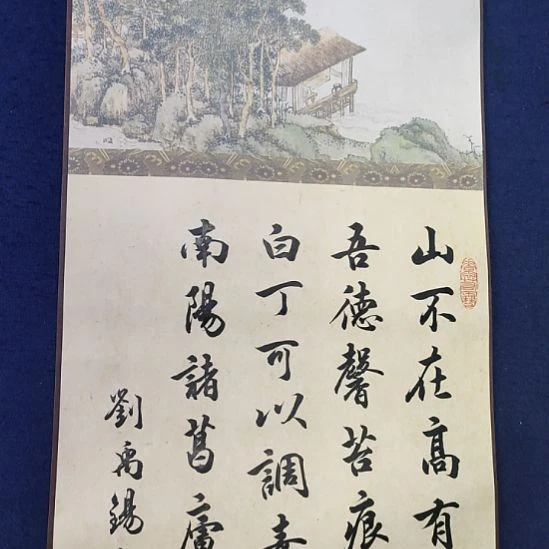 山不在高有
吾德馨苔痕
白丁可以調素
南陽諸葛廬
劉禹錫